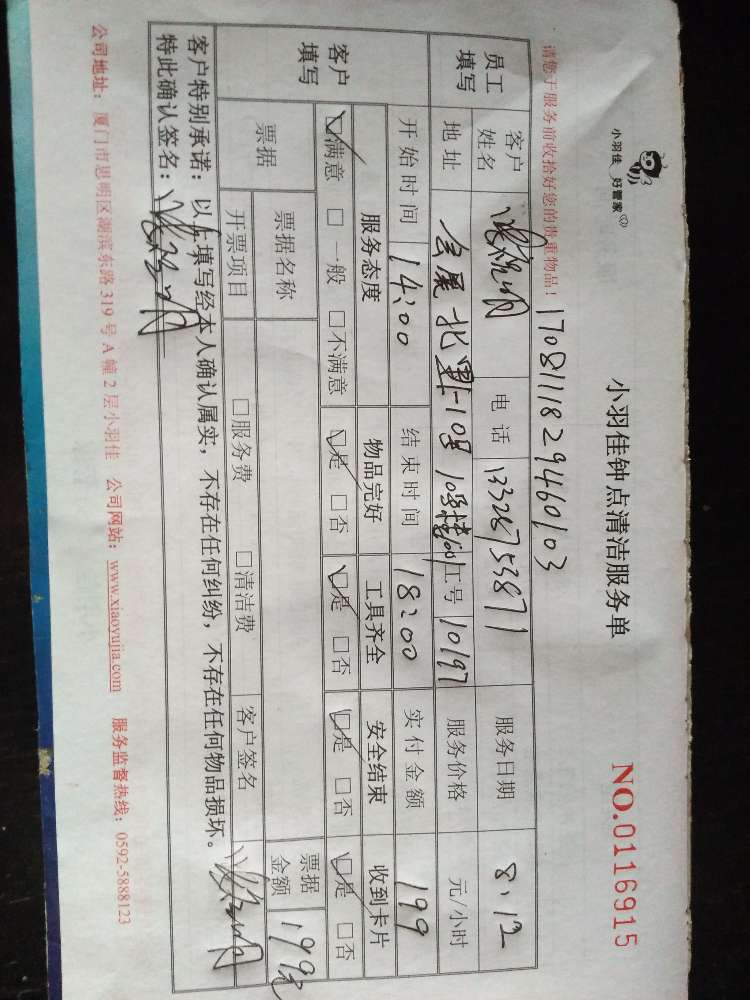 小羽佳 好管家
小羽佳钟点清洁服务单
NO.0116915
请您于服务前收拾好您的贵重物品！
1708111829460103
员工填写 客户姓名 电话 13328753871 服务日期 8.12
地址 会展北里 10号 工号 10197 服务价格 元/小时
开始时间 14:00 结束时间 18:00 实付金额 199
客户填写 服务态度 物品完好 工具齐全 安全结束 收到卡片
☑满意 □一般 □不满意 ☑是 □否 ☑是 □否 ☑是 □否 ☑是 □否
票据 票据名称 票据金额 199元
开票项目 □服务费 □清洁费 客户签名
客户特别承诺：以上填写经本人确认属实，不存在任何纠纷，不存在任何物品损坏。
特此确认签名：
公司地址：厦门市思明区湖滨东路 319 号 A 幢 2 层小羽佳 公司网站：www.xiaoyujia.com 服务监督热线：0592-5888123